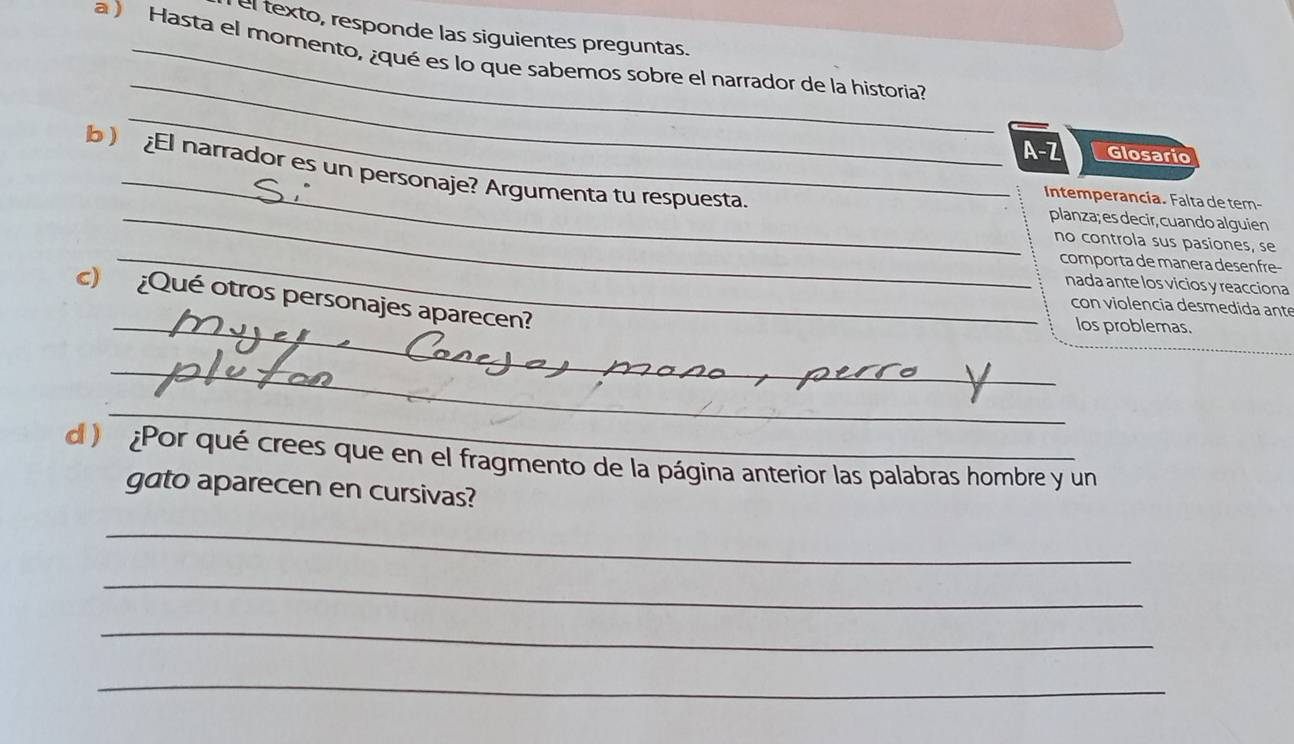 el texto, responde las siguientes preguntas.
a) Hasta el momento, ¿qué es lo que sabemos sobre el narrador de la historia?
b) ¿El narrador es un personaje? Argumenta tu respuesta.
Si
c) ¿Qué otros personajes aparecen?
Muyer, Conejos, mono, perro y
pluton
d) ¿Por qué crees que en el fragmento de la página anterior las palabras hombre y un
gato aparecen en cursivas?
A-Z Glosario
Intemperancia. Falta de tem-
planza; es decir, cuando alguien
no controla sus pasiones, se
comporta de manera desenfre-
nada ante los vicios y reacciona
con violencia desmedida ante
los problemas.